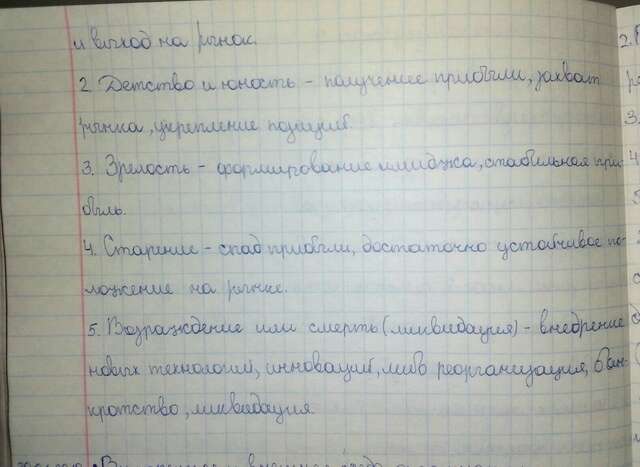 и выход на рынок.
2. Детство и юность - получение прибыли, захват
рынка, укрепление позиций.
3. Зрелость - формирование имиджа, стабильная при-
быль.
4. Старение - спад прибыли, достаточно устойчивое по-
ложение на рынке.
5. Возраждение или смерть (ликвидация) - внедрение
новых технологий, инноваций, либо реорганизация, бан-
кротство, ликвидация.